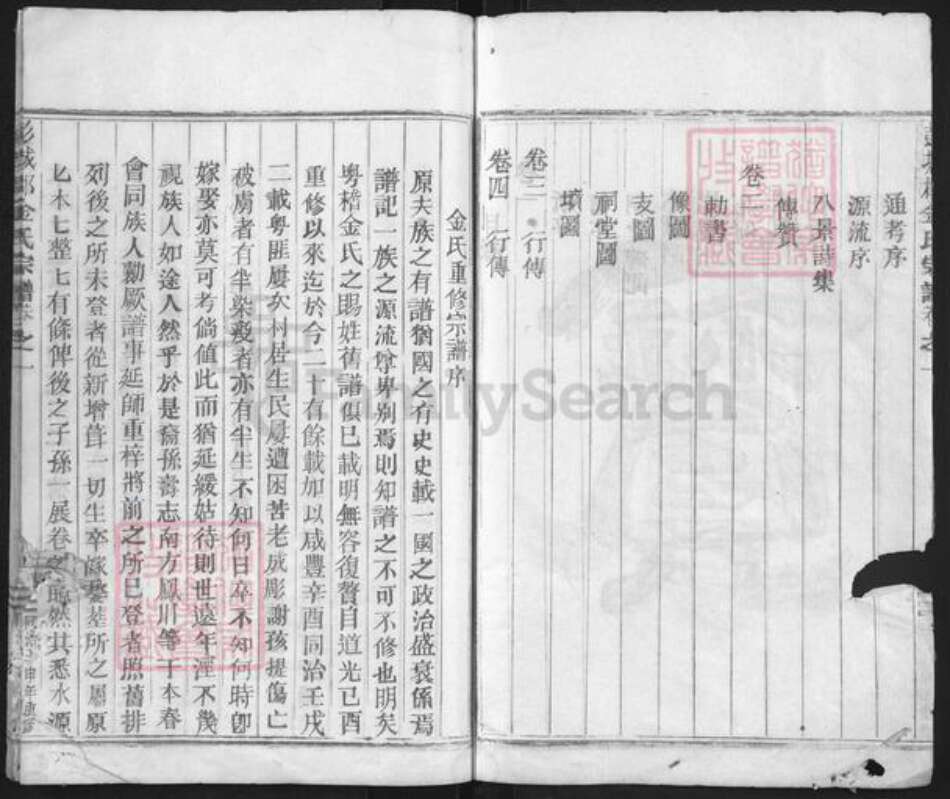 通考序
源流序
八景詩集
傳贊
卷二
勅書
像圖
支圖
祠堂圖
墳圖
卷三 行傳
卷四 行傳
金氏重修宗譜序
原夫族之有譜猶國之有史史載一國之政治盛衰係焉
譜記一族之源流尊卑別焉則知譜之不可不修也明矣
粤稽金氏之賜姓舊譜俱已載明無容復贅自道光已酉
重修以來迄於今二十有餘載加以咸豐辛酉同治壬戌
二載粤匪屢次村居生民屢遭困苦老成彫謝孩提傷亡
被虜者有半染疫者亦有半生不知何日卒不知何時卽
嫁娶亦莫可考倘値此而猶延緩姑待則世遠年湮不幾
視族人如途人然乎於是裔孫壽志南方鳳川等于本春
會同族人勷厥譜事延師重梓將前之所已登者照舊排
列後之所未登者從新增葺一切生卒嫁娶墓所之屬原
匕本匕整匕有條俾後之子孫一展卷之 然其悉水源
彭城郡金氏宗譜卷之一
FamilySearch